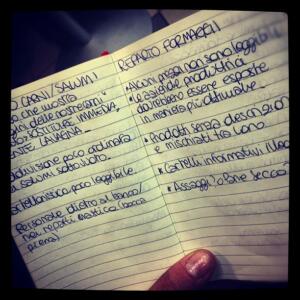 O CARNI/SALUMI
che mostra
dei nostrani"
SOSTITUIRE IMMEDIA
LAVAGNA
divisione poco ordinata
salumi sottovuoto.
cartellonistica poco leggibile
Personale dietro al banco/
nei reparti mastica (bocca
piena)
REPARTO FORMAGGI
• Alcuni prezzi non sono leggibili
• Le aziende produttrici
dovrebbero essere esposte
in maniera più attivate.
• Prodotti senza descrizione
e mischiati tra loro.
• Cartelli informativi
• Assaggi: o Pane secco